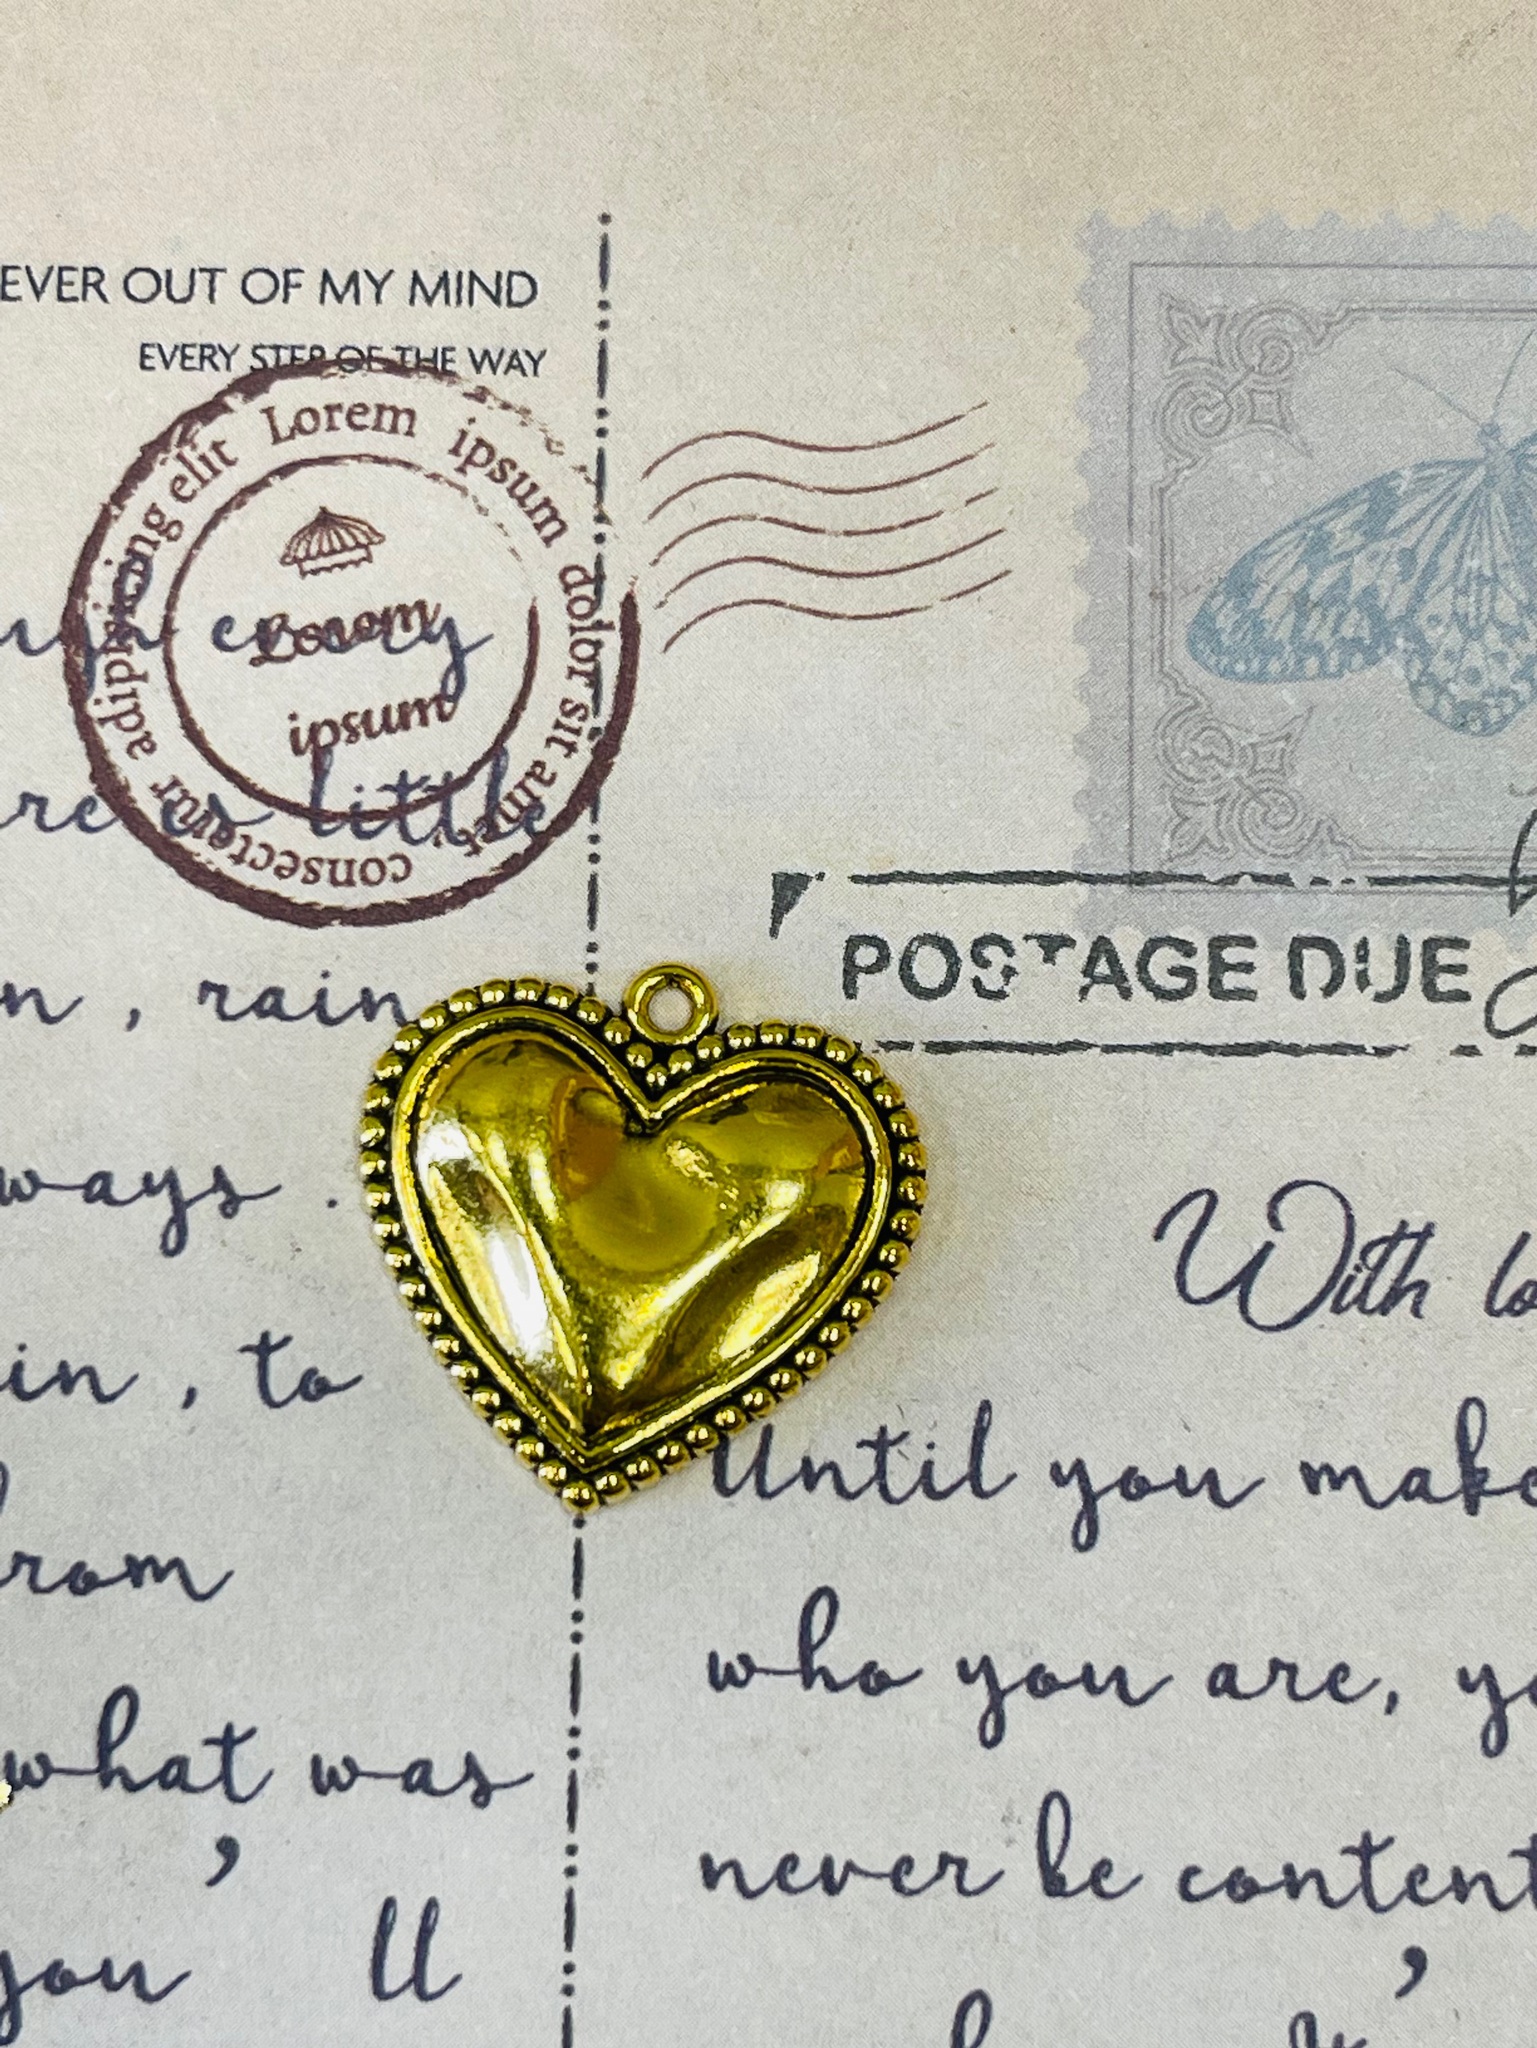 EVER OUT OF MY MIND
EVERY STEP OF THE WAY
Lorem ipsum dolor sit amet, consectetur adipiscing elit
Lorem
ipsum
every
re is little
n, rain
ways.
in, to
rom
what was
,
you ll
POSTAGE DUE
With lo
Until you make
who you are, yo
never be content
,